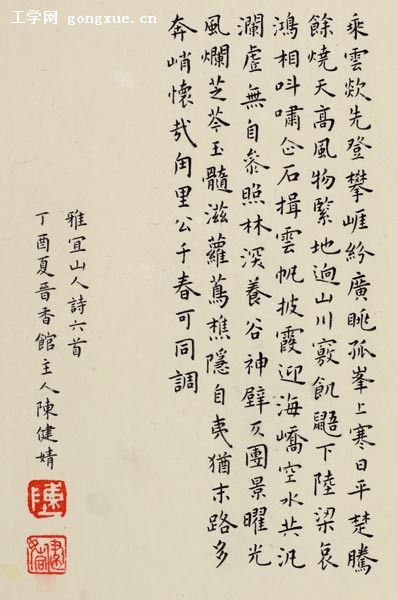 工学网 - gongxue.cn
乘雲欻先登攀崕紛廣眺孤峯上寒日平楚騰
餘燒天高風物緊地迥山川竅飢鼯下陸梁哀
鴻相呌嘯企石揖雲帆披霞迎海嶠空水共汎
瀾虛無自參照林深養谷神壁仄團景曜光
風爛芝苓玉髓滋蘿蔦樵隱自夷猶末路多
奔峭懷哉甪里公千春可同調
雅宜山人詩六首
丁酉夏晉香館主人陳健婧
陳